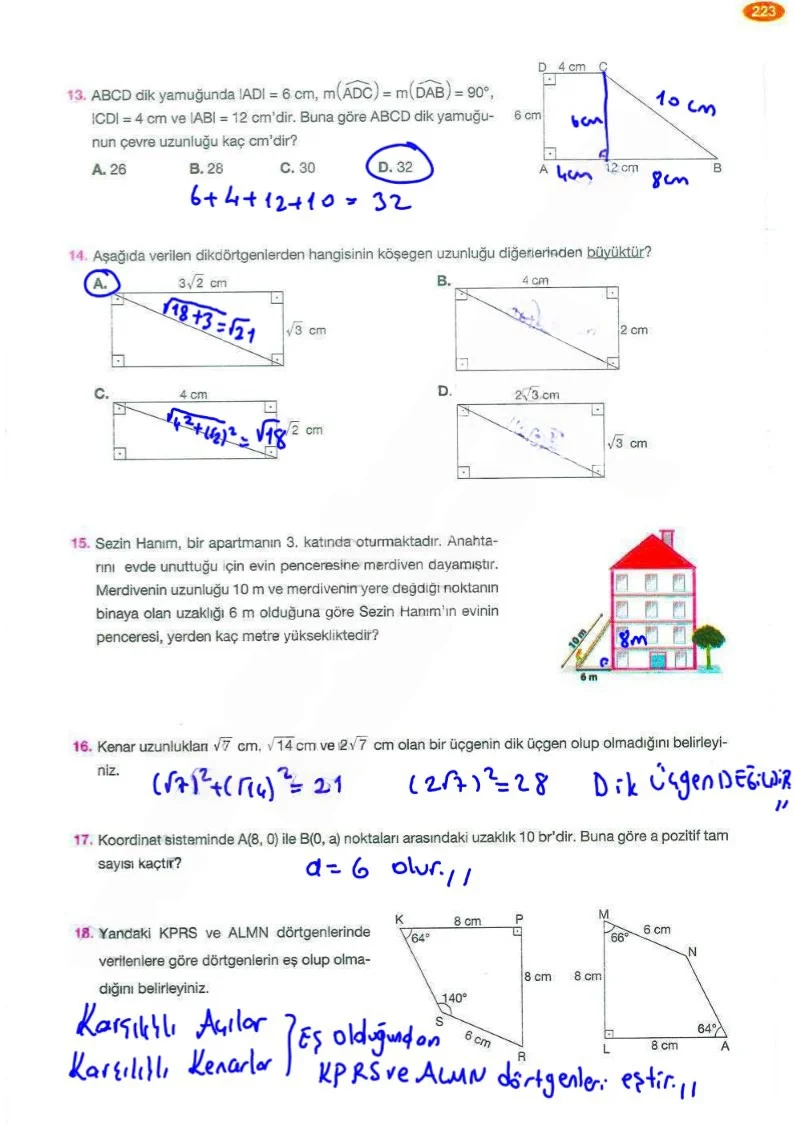 223
13. ABCD dik yamuğunda |AD| = 6 cm, m(ADC) = m(DAB) = 90°,
|CD| = 4 cm ve |AB| = 12 cm'dir. Buna göre ABCD dik yamuğu-
nun çevre uzunluğu kaç cm'dir?
A. 26 B. 28 C. 30 D. 32
6+4+12+10 = 32
D 4 cm C
6 cm 6cm 10 cm
A 4cm 12 cm 8cm B
14. Aşağıda verilen dikdörtgenlerden hangisinin köşegen uzunluğu diğerlerinden büyüktür?
A. 3√2 cm
√18+3 = √21
√3 cm
B. 4 cm
2 cm
C. 4 cm
√4²+(√2)² = √18
√2 cm
D. 2√3 cm
√3 cm
15. Sezin Hanım, bir apartmanın 3. katında oturmaktadır. Anahta-
rını evde unuttuğu için evin penceresine merdiven dayamıştır.
Merdivenin uzunluğu 10 m ve merdivenin yere değdiği noktanın
binaya olan uzaklığı 6 m olduğuna göre Sezin Hanım'ın evinin
penceresi, yerden kaç metre yüksekliktedir?
10 m
8m
6 m
16. Kenar uzunlukları √7 cm, √14 cm ve 2√7 cm olan bir üçgenin dik üçgen olup olmadığını belirleyi-
niz.
(√7)²+(√14)² = 21 (2√7)² = 28 Dik üçgen DEĞİLDİR //
17. Koordinat sisteminde A(8, 0) ile B(0, a) noktaları arasındaki uzaklık 10 br'dir. Buna göre a pozitif tam
sayısı kaçtır?
a = 6 olur. //
18. Yandaki KPRS ve ALMN dörtgenlerinde
verilenlere göre dörtgenlerin eş olup olma-
dığını belirleyiniz.
K 8 cm P
64°
8 cm
140°
S 6 cm
R
M 6 cm
66° N
8 cm
64°
L 8 cm A
Karşılıklı Açılar
Karşılıklı Kenarlar } Eş olduğundan
KPRS ve ALMN dörtgenleri eştir. //